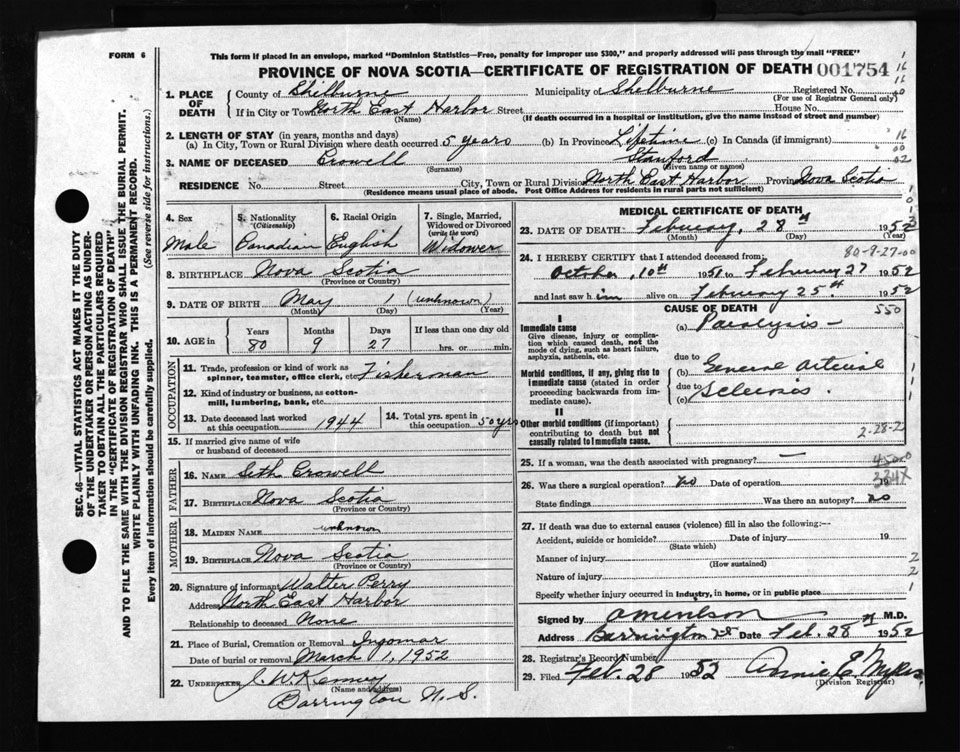 FORM 6
This form if placed in an envelope, marked "Dominion Statistics—Free, penalty for improper use $300," and properly addressed will pass through the mail "FREE"
PROVINCE OF NOVA SCOTIA—CERTIFICATE OF REGISTRATION OF DEATH 001754
1. PLACE OF DEATH
County of Shelburne Municipality of Shelburne Registered No.
(For use of Registrar General only)
If in City or Town North East Harbor Street House No.
(Name) (If death occurred in a hospital or institution, give the name instead of street and number)
2. LENGTH OF STAY (in years, months and days)
(a) In City, Town or Rural Division where death occurred 5 years (b) In Province Lifetime (c) In Canada (if immigrant)
3. NAME OF DECEASED Crowell Stanford
(Surname) (Given name or names)
RESIDENCE No. Street City, Town or Rural Division North East Harbor Province Nova Scotia
(Residence means usual place of abode. Post Office Address for residents in rural parts not sufficient)
4. Sex
Male
5. Nationality
(Citizenship)
Canadian
6. Racial Origin
English
7. Single, Married, Widowed or Divorced
(write the word)
Widower
8. BIRTHPLACE Nova Scotia
(Province or Country)
9. DATE OF BIRTH May 1 (unknown)
(Month) (Day) (Year)
10. AGE in
Years Months Days If less than one day old
80 9 27 hrs. or min.
OCCUPATION
11. Trade, profession or kind of work as
spinner, teamster, office clerk, etc. Fisherman
12. Kind of industry or business, as cotton-
mill, lumbering, bank, etc.
13. Date deceased last worked
at this occupation 1944
14. Total yrs. spent in
this occupation 50 yrs
15. If married give name of wife
or husband of deceased
FATHER
16. NAME Seth Crowell
17. BIRTHPLACE Nova Scotia
(Province or Country)
MOTHER
18. MAIDEN NAME unknown
19. BIRTHPLACE Nova Scotia
(Province or Country)
20. Signature of informant Walter Perry
Address North East Harbor
Relationship to deceased None
21. Place of Burial, Cremation or Removal Ingomar
Date of burial or removal March 1, 1952
22. UNDERTAKER J. W. Kenney
(Name and address)
Barrington N. S.
MEDICAL CERTIFICATE OF DEATH
23. DATE OF DEATH February, 28th 1952
(Month) (Day) (Year)
80-9-27-00
24. I HEREBY CERTIFY that I attended deceased from:
October, 10th 1951 to February 27 1952
and last saw him alive on February 25th 1952
CAUSE OF DEATH 550
I
Immediate cause
Give disease, injury or complication which caused death, not the mode of dying, such as heart failure, asphyxia, asthenia, etc.
(a) Paralysis
due to
Morbid conditions, if any, giving rise to immediate cause (stated in order proceeding backwards from immediate cause).
(b) General Arterial
due to
(c) Sclerosis
II
Other morbid conditions (if important) contributing to death but not causally related to immediate cause.
2-28-2
25. If a woman, was the death associated with pregnancy? —
26. Was there a surgical operation? no Date of operation 19
334X
State findings Was there an autopsy? no
27. If death was due to external causes (violence) fill in also the following:—
Accident, suicide or homicide? Date of injury 19
(State which)
Manner of injury
(How sustained)
Nature of injury
Specify whether injury occurred in industry, in home, or in public place
Signed by M.D.
Address Barrington Date Feb. 28 1952
28. Registrar's Record Number
29. Filed Feb. 28 1952 Annie E. Myles
(Division Registrar)
SEC. 46—VITAL STATISTICS ACT MAKES IT THE DUTY
OF THE UNDERTAKER OR PERSON ACTING AS UNDER-
TAKER TO OBTAIN ALL THE PARTICULARS REQUIRED
IN THE "CERTIFICATE OF REGISTRATION OF DEATH"
AND TO FILE THE SAME WITH THE DIVISION REGISTRAR WHO SHALL ISSUE THE BURIAL PERMIT.
WRITE PLAINLY WITH UNFADING INK. THIS IS A PERMANENT RECORD.
Every item of information should be carefully supplied. (See reverse side for instructions.)